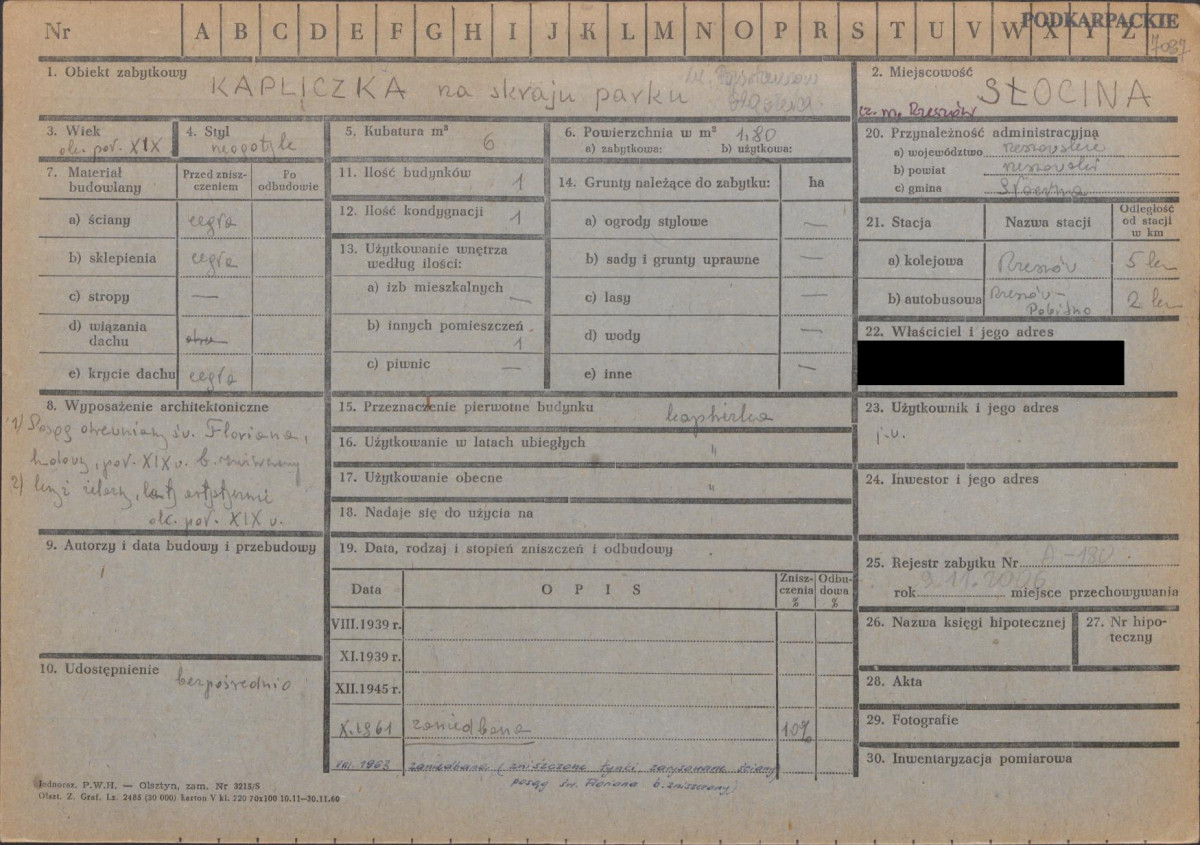 Nr A B C D E F G H I J K L M N O P R S T U V W X Y Z
PODKARPACKIE
7087
1. Obiekt zabytkowy
KAPLICZKA na skraju parku
ul. Powstańców
2. Miejscowość
SŁOCINA
cz. m. Rzeszów
3. Wiek
ok. poł. XIX
4. Styl
neogotyk
5. Kubatura m³
6
6. Powierzchnia w m² 1,80
a) zabytkowa: b) użytkowa:
7. Materiał budowlany
Przed zniszczeniem
Po odbudowie
a) ściany cegła
b) sklepienia cegła
c) stropy —
d) wiązania dachu
e) krycie dachu cegła
8. Wyposażenie architektoniczne
1) Posąg drewniany św. Floriana,
ludowy, poł. XIX w. b. zniszczony
2) krzyż żelazny,
ok. poł. XIX w.
9. Autorzy i data budowy i przebudowy
10. Udostępnienie
bezpośrednio
11. Ilość budynków 1
12. Ilość kondygnacji 1
13. Użytkowanie wnętrza według ilości:
a) izb mieszkalnych —
b) innych pomieszczeń 1
c) piwnic —
14. Grunty należące do zabytku: ha
a) ogrody stylowe —
b) sady i grunty uprawne —
c) lasy —
d) wody —
e) inne —
15. Przeznaczenie pierwotne budynku kapliczka
16. Użytkowanie w latach ubiegłych "
17. Użytkowanie obecne "
18. Nadaje się do użycia na
19. Data, rodzaj i stopień zniszczeń i odbudowy
Data OPIS Zniszczenia % Odbudowa %
VIII.1939 r.
XI.1939 r.
XII.1945 r.
X.1961 zaniedbana 10%
VIII. 1963 zaniedbana (zniszczone tynki zarysowane ściany
posąg św. Floriana b. zniszczony)
20. Przynależność administracyjna
a) województwo rzeszowskie
b) powiat rzeszowski
c) gmina Słocina
21. Stacja Nazwa stacji Odległość od stacji w km
a) kolejowa Rzeszów 5 km
b) autobusowa Rzeszów-Pobitno 2 km
22. Właściciel i jego adres
23. Użytkownik i jego adres
j.w.
24. Inwestor i jego adres
25. Rejestr zabytku Nr A-180
rok 9.11.2006 miejsce przechowywania
26. Nazwa księgi hipotecznej
27. Nr hipoteczny
28. Akta
29. Fotografie
30. Inwentaryzacja pomiarowa
Jednoraz. P.W.H. — Olsztyn, zam. Nr 3215/S
Olszt. Z. Graf. Lz. 2485 (30 000) karton V kl. 220 70x100 10.11—30.11.60